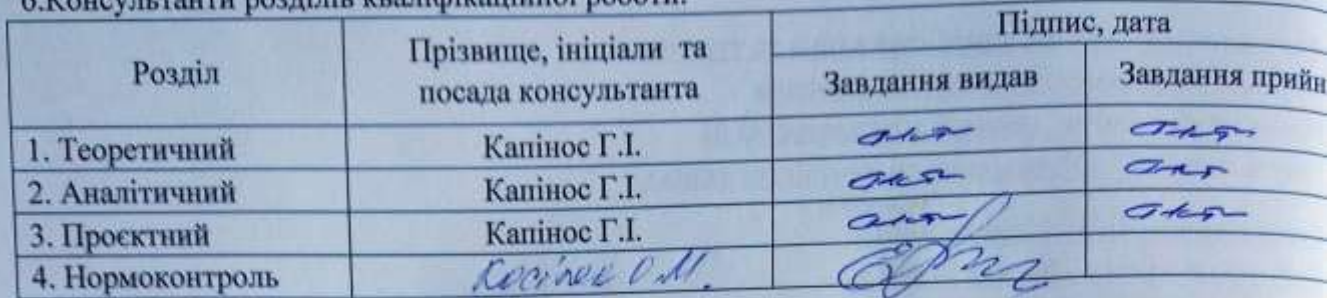 6.Консультанти розділів кваліфікаційної роботи:
Розділ
Прізвище, ініціали та
посада консультанта
Підпис, дата
Завдання видав
Завдання прийн
1. Теоретичний
Капінос Г.І.
2. Аналітичний
Капінос Г.І.
3. Проєктний
Капінос Г.І.
4. Нормоконтроль
О.М.